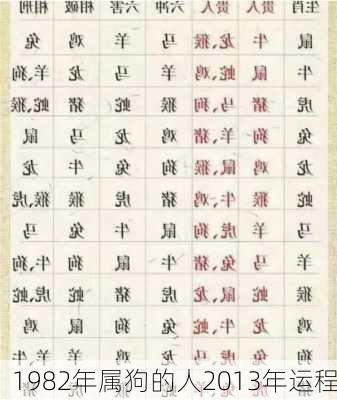 生肖 贵人 贵人 六冲 六害 相破 相刑
鼠 牛 龙、猴 马 羊 鸡 兔
牛 鼠 蛇、鸡 羊 马 龙 羊、狗
虎 猪 马、狗 猴 蛇 猪 蛇、猴
兔 狗 羊、猪 鸡 龙 马 鼠
龙 鸡 鼠、猴 狗 兔 牛 龙
蛇 猴 牛、鸡 猪 虎 猴 猴、虎
马 羊 虎、狗 鼠 牛 兔 马
羊 马 兔、猪 牛 鼠 狗 牛、狗
猴 蛇 鼠、龙 虎 猪 蛇 虎、蛇
鸡 龙 牛、蛇 兔 狗 鼠 鸡
狗 兔 虎、马 龙 鸡 羊 牛、羊
1982年属狗的人2013年运程